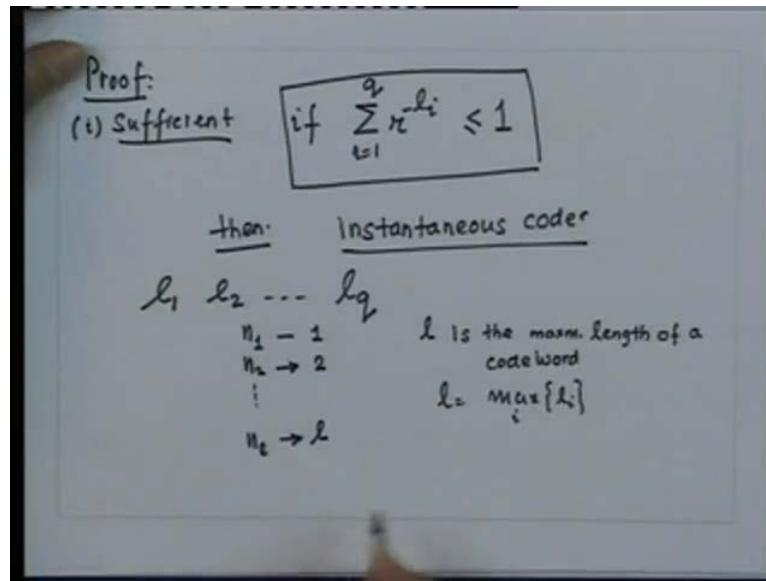 Proof:
(i) Sufficient if ∑_{i=1}^{q} r^{-l_i} ≤ 1
then. instantaneous codes
l_1 l_2 --- l_q
n_1 – 1 l is the maxm. length of a
n_2 → 2 codeword
⋮ l = max_i {l_i}
n_l → l